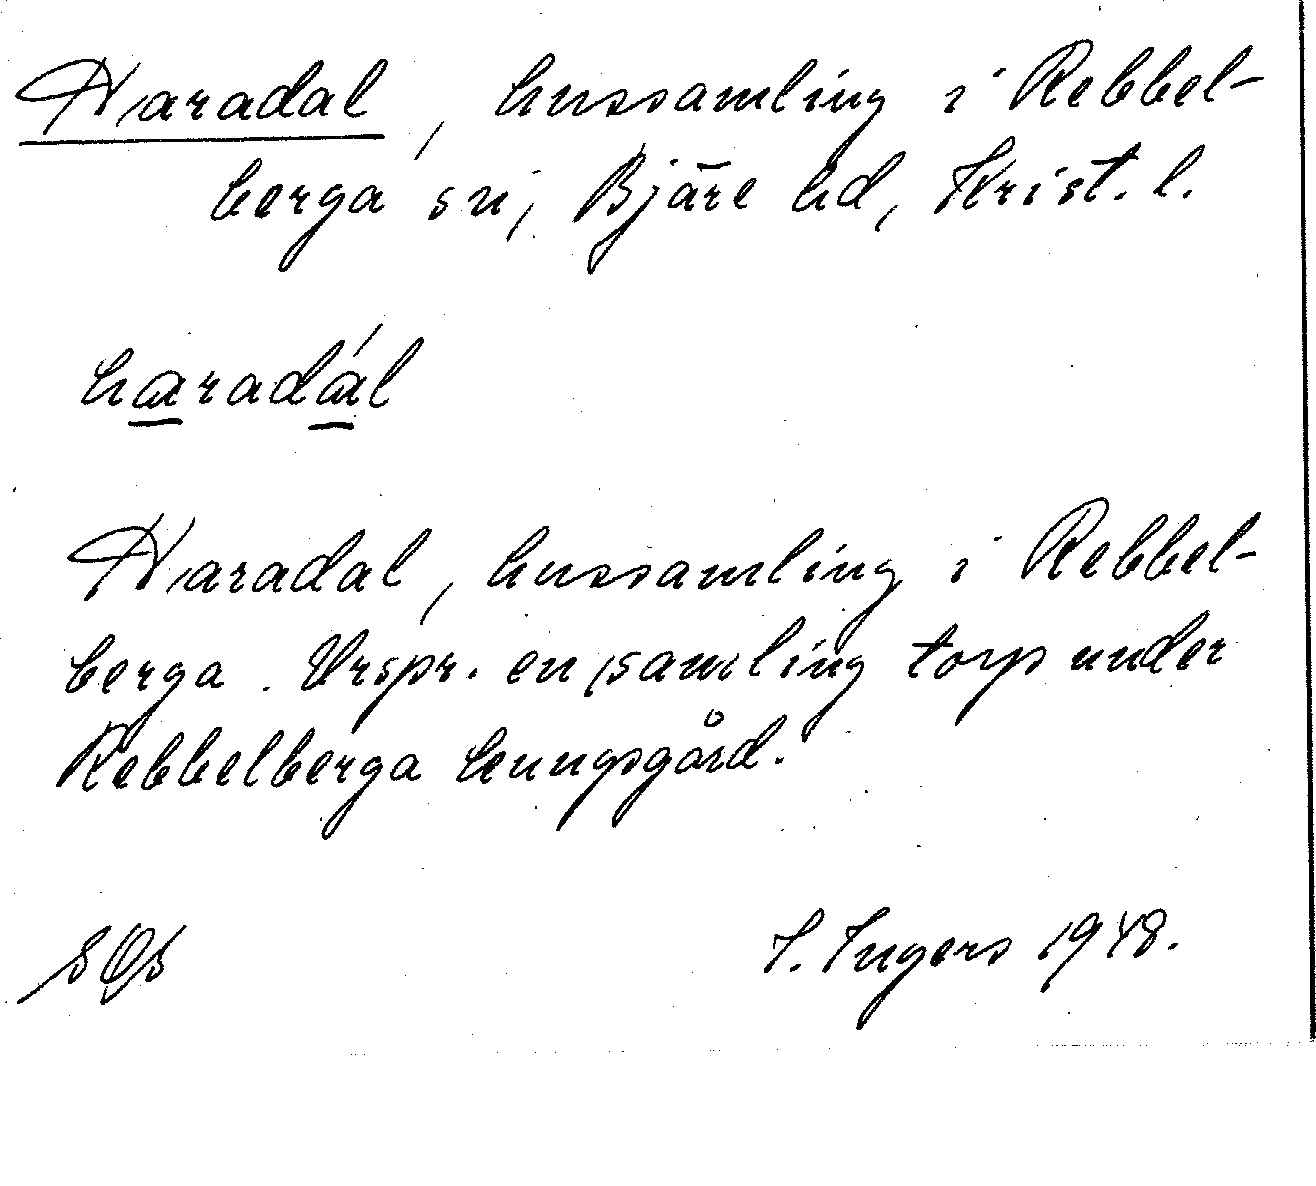 Haradal, hussamling i Rebbel-
berga sn, Bjäre hd, Krist. l.
haradál
Haradal, hussamling i Rebbel-
berga. Urspr. en samling torp under
Rebbelberga kungsgård.
I. Ingers 1948.